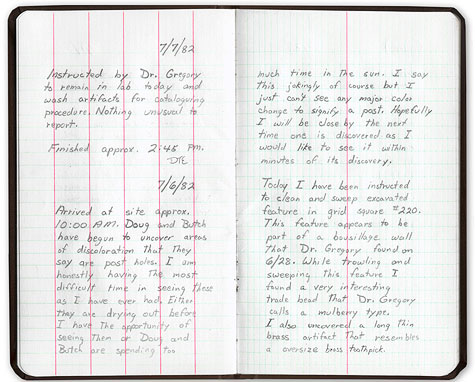 7/7/82
Instructed by Dr. Gregory
to remain in lab today and
wash artifacts for cataloguing
procedure. Nothing unusual to
report.
Finished approx. 2:45 Pm.
DTE
7/6/82
Arrived at site approx.
10:00 A.M. Doug and Butch
have begun to uncover areas
of discoloration that they
say are post holes. I am
honestly having the most
difficult time in seeing these
as I have ever had. Either
they are drying out before
I have the opportunity of
seeing them or Doug and
Butch are spending too
much time in the sun. I say
this jokingly of course but I
just can't see any major color
change to signify a post. Hopefully
I will be close by the next
time one is discovered as I
would like to see it within
minutes of its discovery.
Today I have been instructed
to clean and sweep excavated
feature in grid square #220.
This feature appears to be
part of a bousillage wall
that Dr. Gregory found on
6/28. While trowling and
sweeping this feature I
found a very interesting
trade bead that Dr. Gregory
calls a mulberry type.
I also uncovered a long thin
brass artifact that resembles
a oversize brass toothpick.